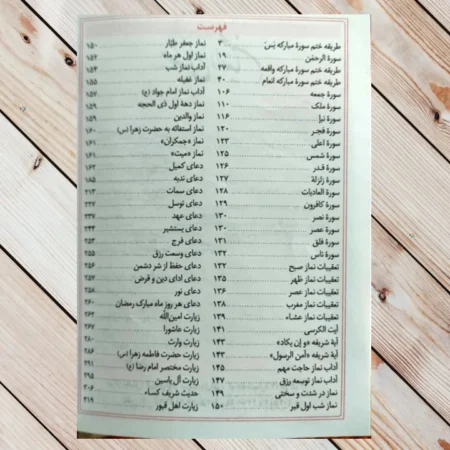 فهرست
طریقه ختم سورهٔ مبارکه یس ۳
سورهٔ الرحمن ۱۹
طریقه ختم سورهٔ مبارکه واقعه ۲۷
طریقه ختم سورهٔ مبارکه انعام ۴۰
سورهٔ جمعه ۱۰۶
سورهٔ ملک ۱۱۰
سورهٔ نبإ ۱۱۶
سورهٔ فجر ۱۲۰
سورهٔ اعلی ۱۲۳
سورهٔ شمس ۱۲۵
سورهٔ قدر ۱۲۶
سورهٔ زلزلة ۱۲۷
سورهٔ العادیات ۱۲۸
سورهٔ کافرون ۱۲۹
سورهٔ نصر ۱۳۰
سورهٔ عصر ۱۳۰
سورهٔ فلق ۱۳۱
سورهٔ ناس ۱۳۲
تعقیبات نماز صبح ۱۳۲
تعقیبات نماز ظهر ۱۳۵
تعقیبات نماز عصر ۱۳۶
تعقیبات نماز مغرب ۱۳۸
تعقیبات نماز عشاء ۱۳۹
آیت الکرسی ۱۴۱
آیهٔ شریفه «و إن یکاد» ۱۴۳
آیهٔ شریفه «آمن الرسول» ۱۴۳
آداب نماز حاجت مهم ۱۴۵
آداب نماز توسعه رزق ۱۴۷
نماز در شدت و سختی ۱۴۹
نماز شب اول قبر ۱۵۰
نماز جعفر طیّار ۱۵۰
نماز اول هر ماه ۱۵۲
آداب نماز شب ۱۵۳
نماز غفیله ۱۵۵
آداب نماز امام جواد (ع) ۱۵۷
نماز دههٔ اول ذی الحجه ۱۵۹
نماز والدین ۱۵۹
نماز استغاثه به حضرت زهرا (س) ۱۶۰
نماز «جمکران» ۱۶۱
نماز «میت» ۱۶۱
دعای کمیل ۱۶۲
دعای ندبه ۱۸۵
دعای سمات ۲۱۳
دعای توسل ۲۲۷
دعای عهد ۲۳۷
دعای یستشیر ۲۴۴
دعای فرج ۲۵۳
دعای وسعت رزق ۲۵۵
دعای حفظ از شر دشمن ۲۵۶
دعای ادای دین و قرض ۲۵۷
دعای نور ۲۵۸
دعای هر روز ماه مبارک رمضان ۲۶۰
زیارت امین‌الله ۲۶۲
زیارت عاشورا ۲۶۷
زیارت وارث ۲۸۰
زیارت حضرت فاطمه زهرا (س) ۲۸۶
زیارت مختصر امام رضا (ع) ۲۹۱
زیارت آل یاسین ۲۹۵
حدیث شریف کساء ۳۰۶
زیارت اهل قبور ۳۱۹